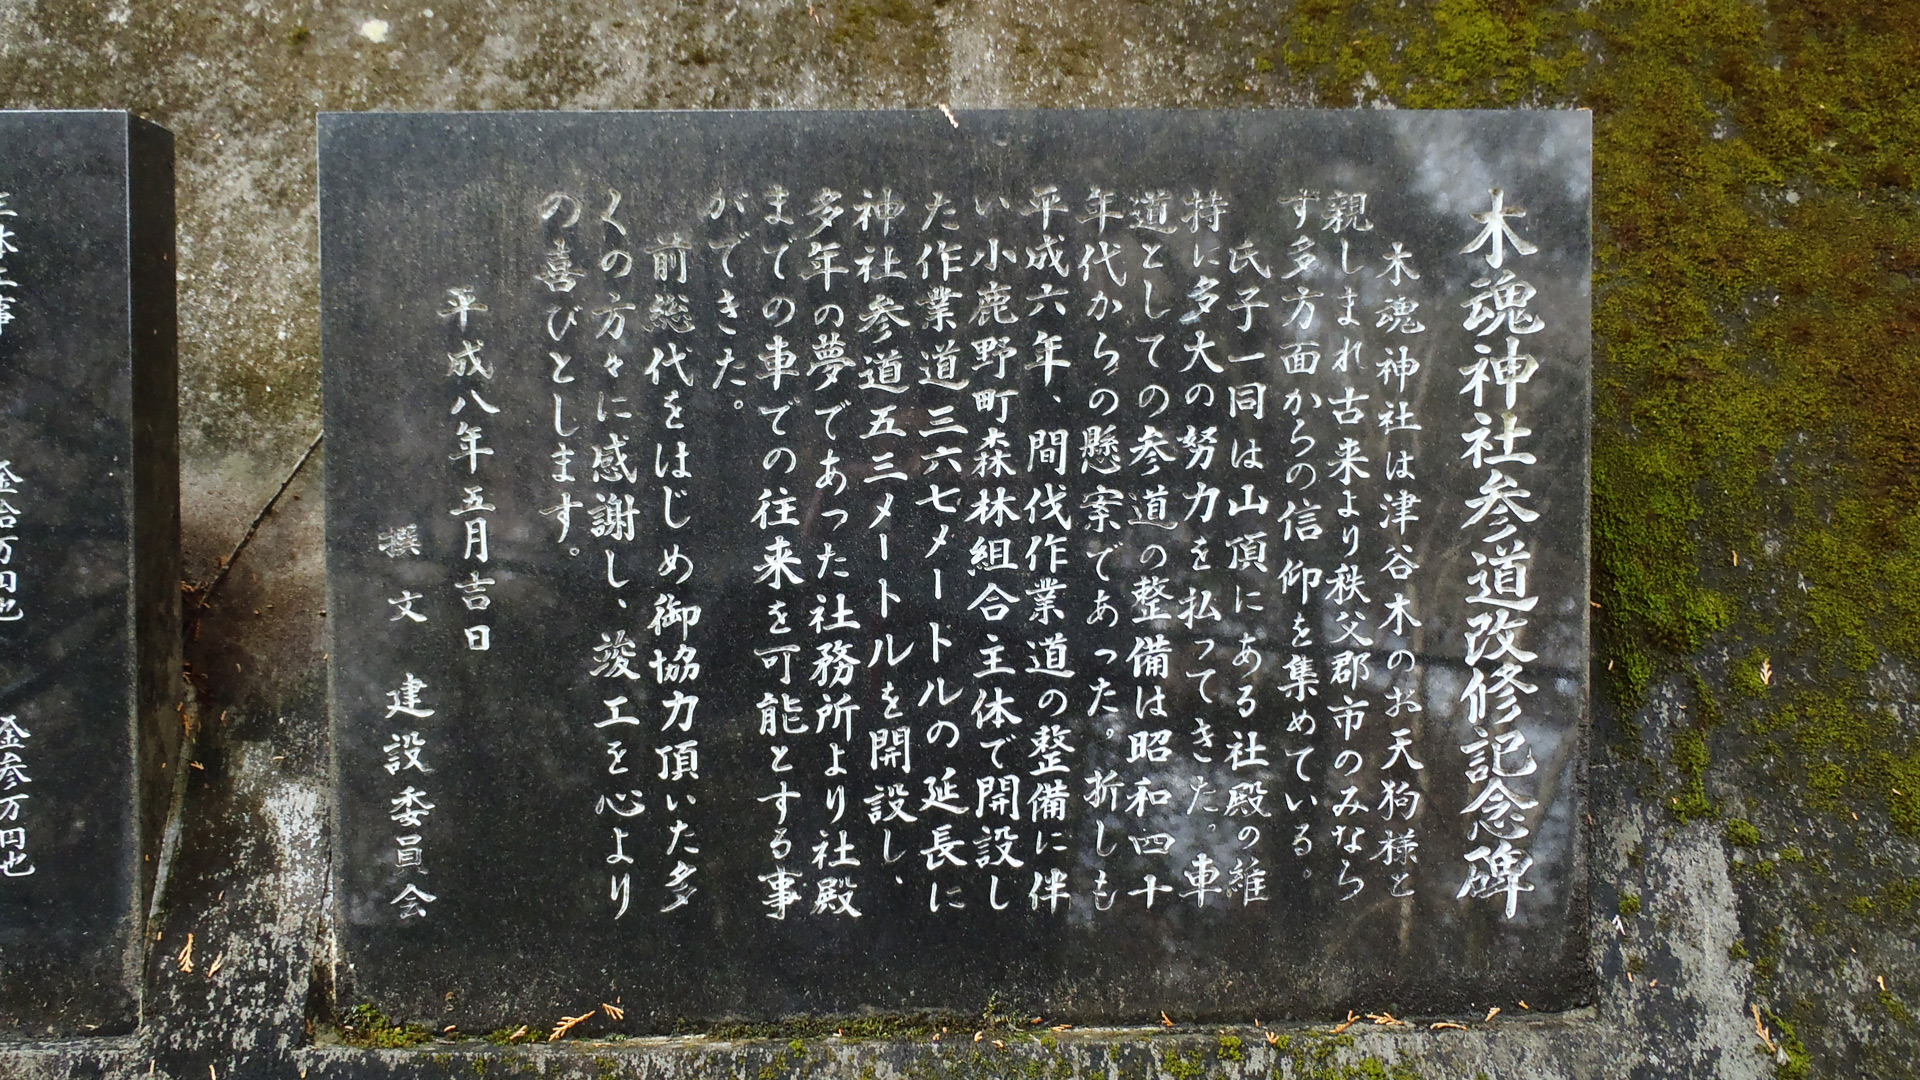 木魂神社参道改修記念碑
木魂神社は津谷木のお天狗様と
親しまれ古来より秩父郡市のみなら
ず多方面からの信仰を集めている。
氏子一同は山頂にある社殿の維
持に多大の努力を払ってきた。車
道としての参道の整備は昭和四十
年代からの懸案であった。折しも
平成六年、間伐作業道の整備に伴
い小鹿野町森林組合主体で開設し
た作業道三六七メートルの延長に
神社参道五三メートルを開設し、
多年の夢であった社務所より社殿
までの車での往来を可能とする事
ができた。
前総代をはじめ御協力頂いた多
くの方々に感謝し、竣工を心より
の喜びとします。
平成八年五月吉日
撰文 建設委員会
金拾万円也 金参万円也